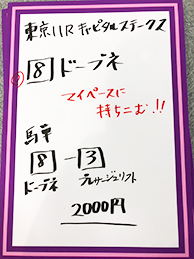 東京11R キャピタルステークス
◎ 8 ドーブネ
マイペースに
持ちこむ!!
馬単
8 - 3
ドーブネ プレサージュリフト
2000円